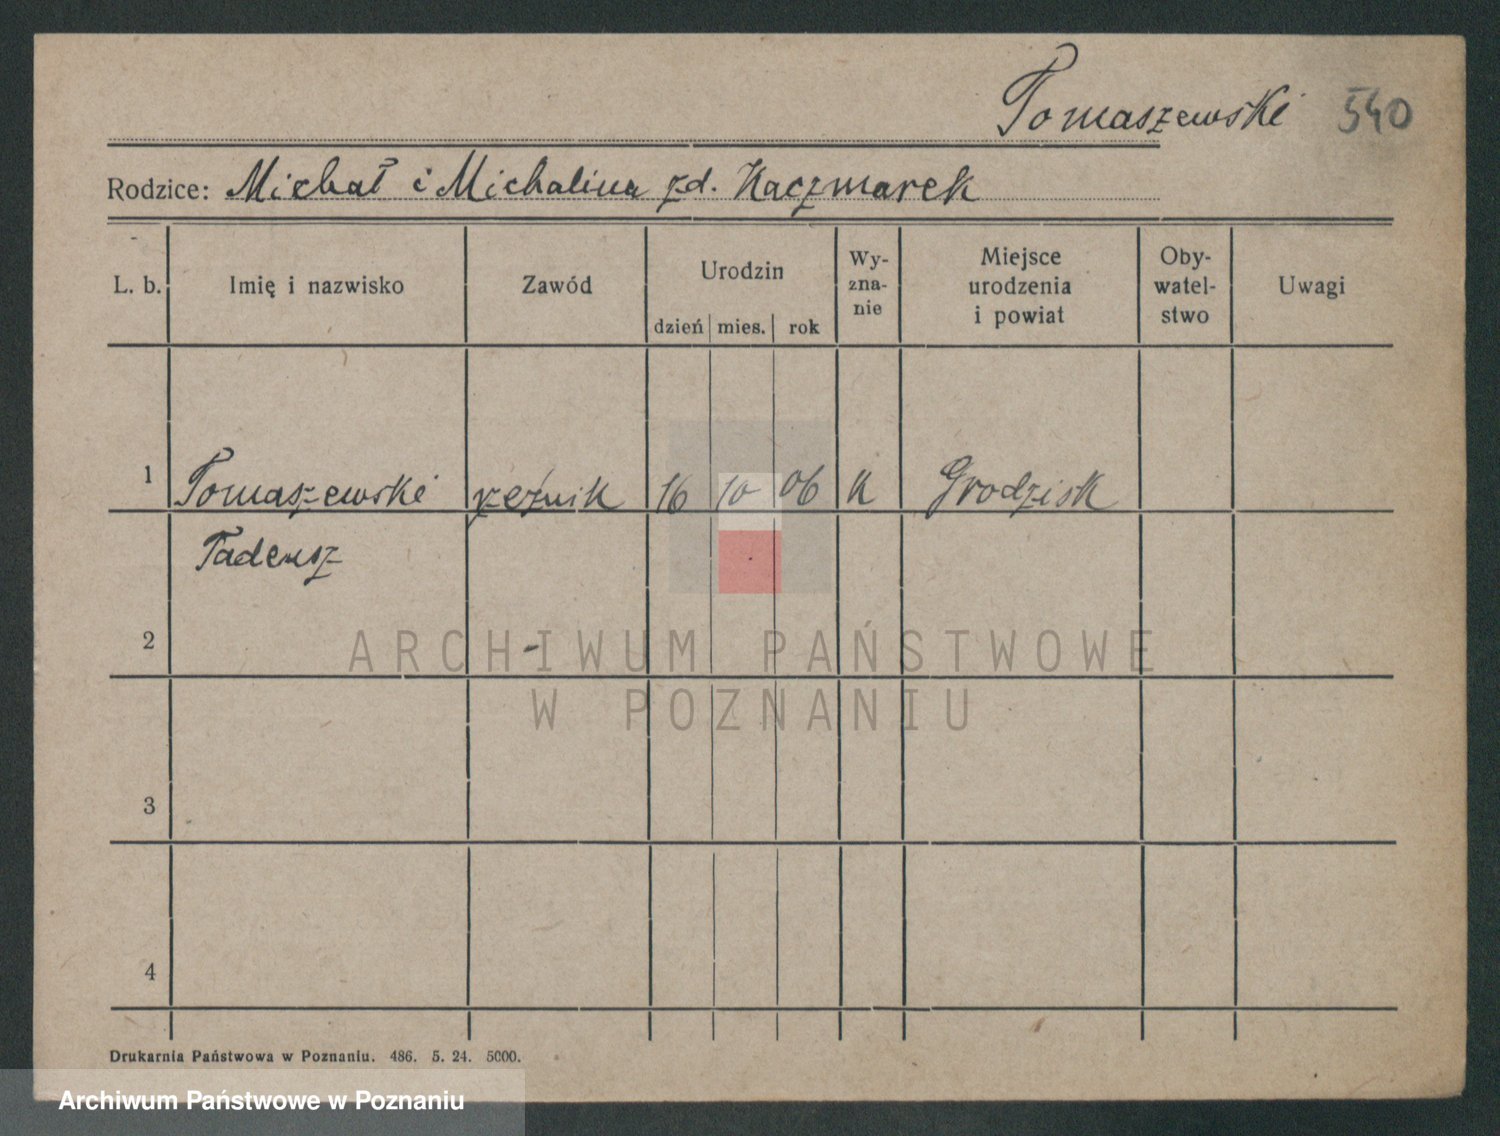 Tomaszewski 540
Rodzice: Michał i Michalina zd. Kaczmarek
L. b. Imię i nazwisko Zawód Urodzin Wy-zna-nie Miejsce urodzenia i powiat Oby-watel-stwo Uwagi
dzień mies. rok
1 Tomaszewski rzeźnik 16 10 06 K Grodzisk
Tadeusz
2
ARCHIWUM PAŃSTWOWE
W POZNANIU
3
4
Drukarnia Państwowa w Poznaniu. 486. 5. 24. 5000.
Archiwum Państwowe w Poznaniu